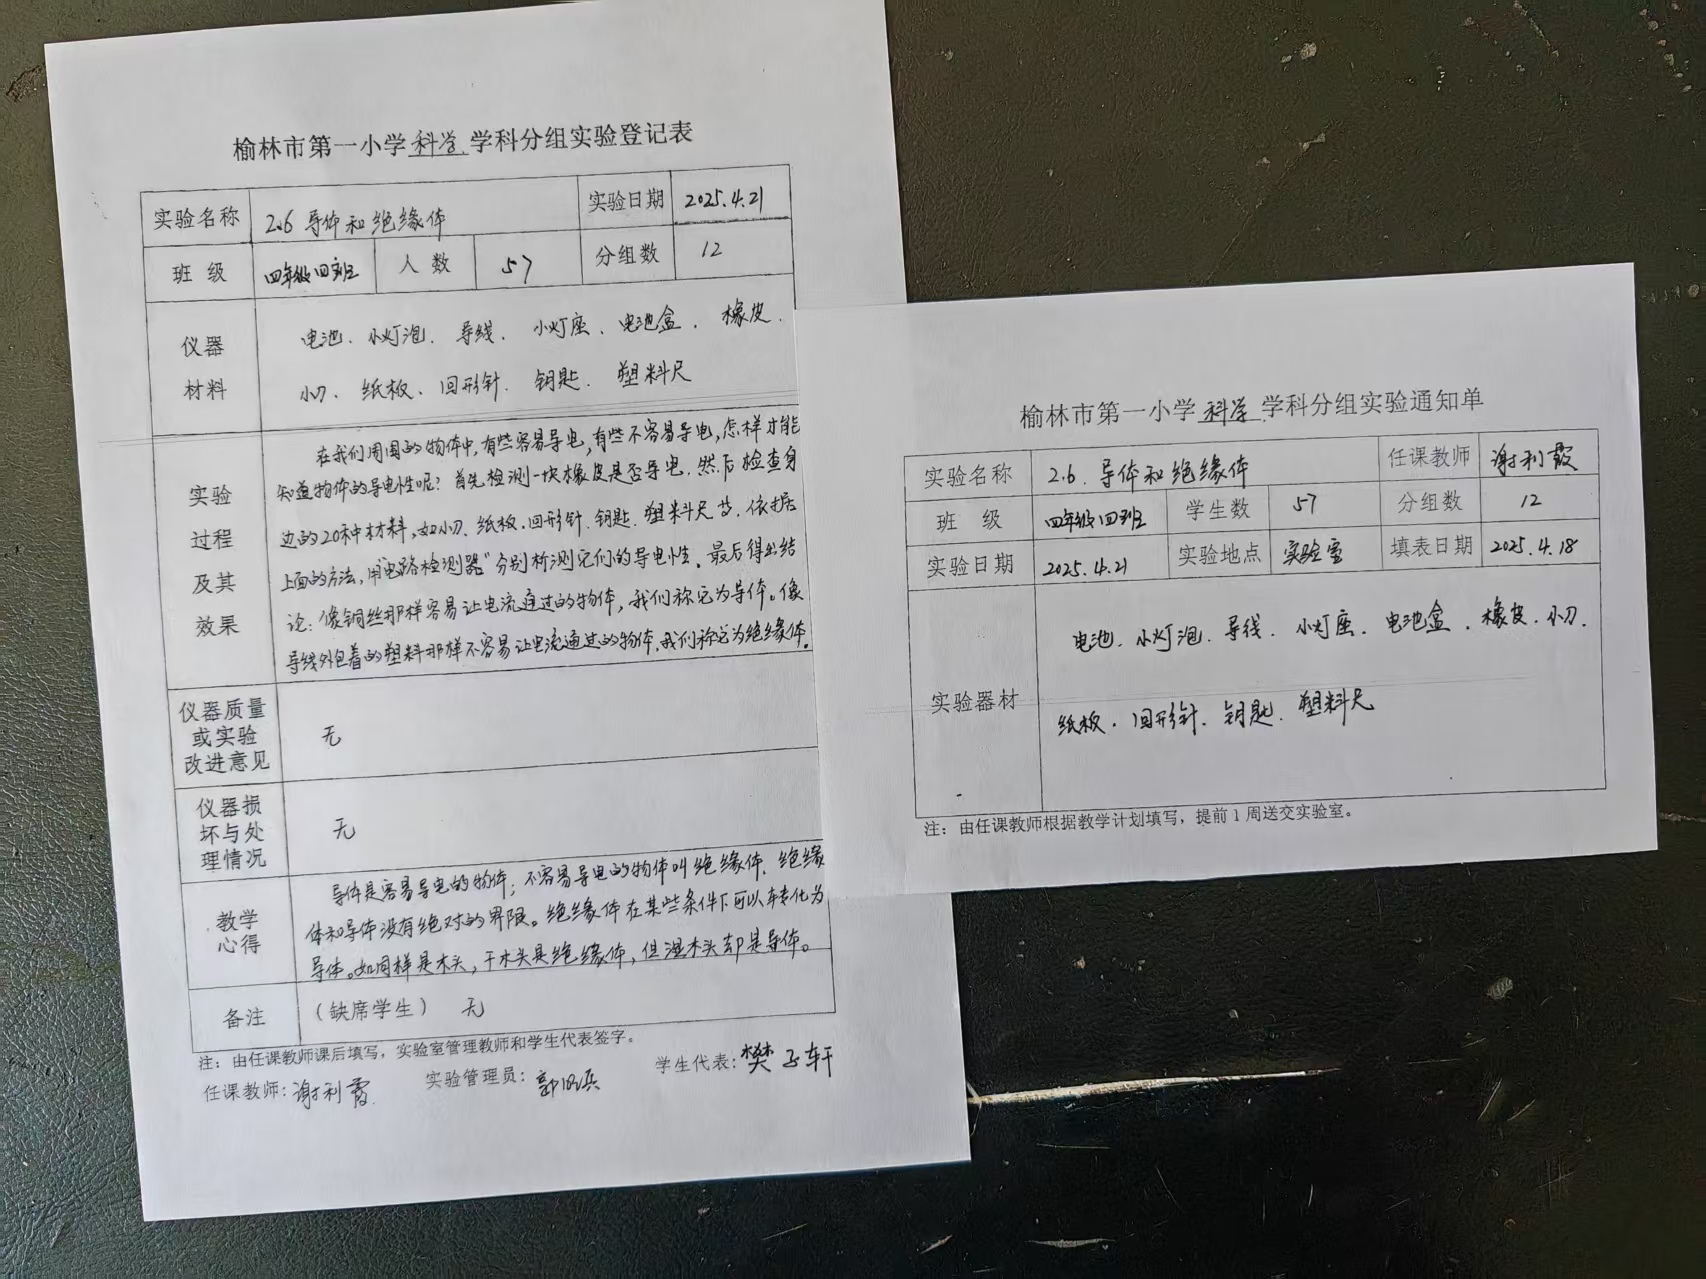 榆林市第一小学科学学科分组实验登记表
实验名称 2.6 导体和绝缘体 实验日期 2025.4.21
班 级 四年级四班 人数 57 分组数 12
仪器材料
电池、小灯泡、导线、小灯座、电池盒、橡皮、
小刀、纸板、回形针、钥匙、塑料尺
实验过程及其效果
在我们周围的物体中,有些容易导电,有些不容易导电,怎样才能
知道物体的导电性呢?首先检测一块橡皮是否导电,然后检查身
边的20种材料,如小刀、纸板、回形针、钥匙、塑料尺等,依据
上面的方法,用“电路检测器”分别析测它们的导电性。最后得出结
论:像铜丝那样容易让电流通过的物体,我们称它为导体。像
导线外包着的塑料那样不容易让电流通过的物体,我们称它为绝缘体。
仪器质量或实验改进意见 无
仪器损坏与处理情况 无
教学心得
导体是容易导电的物体;不容易导电的物体叫绝缘体,绝缘
体和导体没有绝对的界限。绝缘体在某些条件下可以转化为
导体。如同样是木头,干木头是绝缘体,但湿木头却是导体。
备注 (缺席学生) 无
注:由任课教师课后填写,实验室管理教师和学生代表签字。
任课教师:谢利霞 实验管理员: 学生代表:樊子轩
榆林市第一小学科学学科分组实验通知单
实验名称 2.6.导体和绝缘体 任课教师 谢利霞
班 级 四年级四班 学生数 57 分组数 12
实验日期 2025.4.21 实验地点 实验室 填表日期 2025.4.18
实验器材
电池、小灯泡、导线、小灯座、电池盒、橡皮、小刀、
纸板、回形针、钥匙、塑料尺
注:由任课教师根据教学计划填写,提前1周送交实验室。